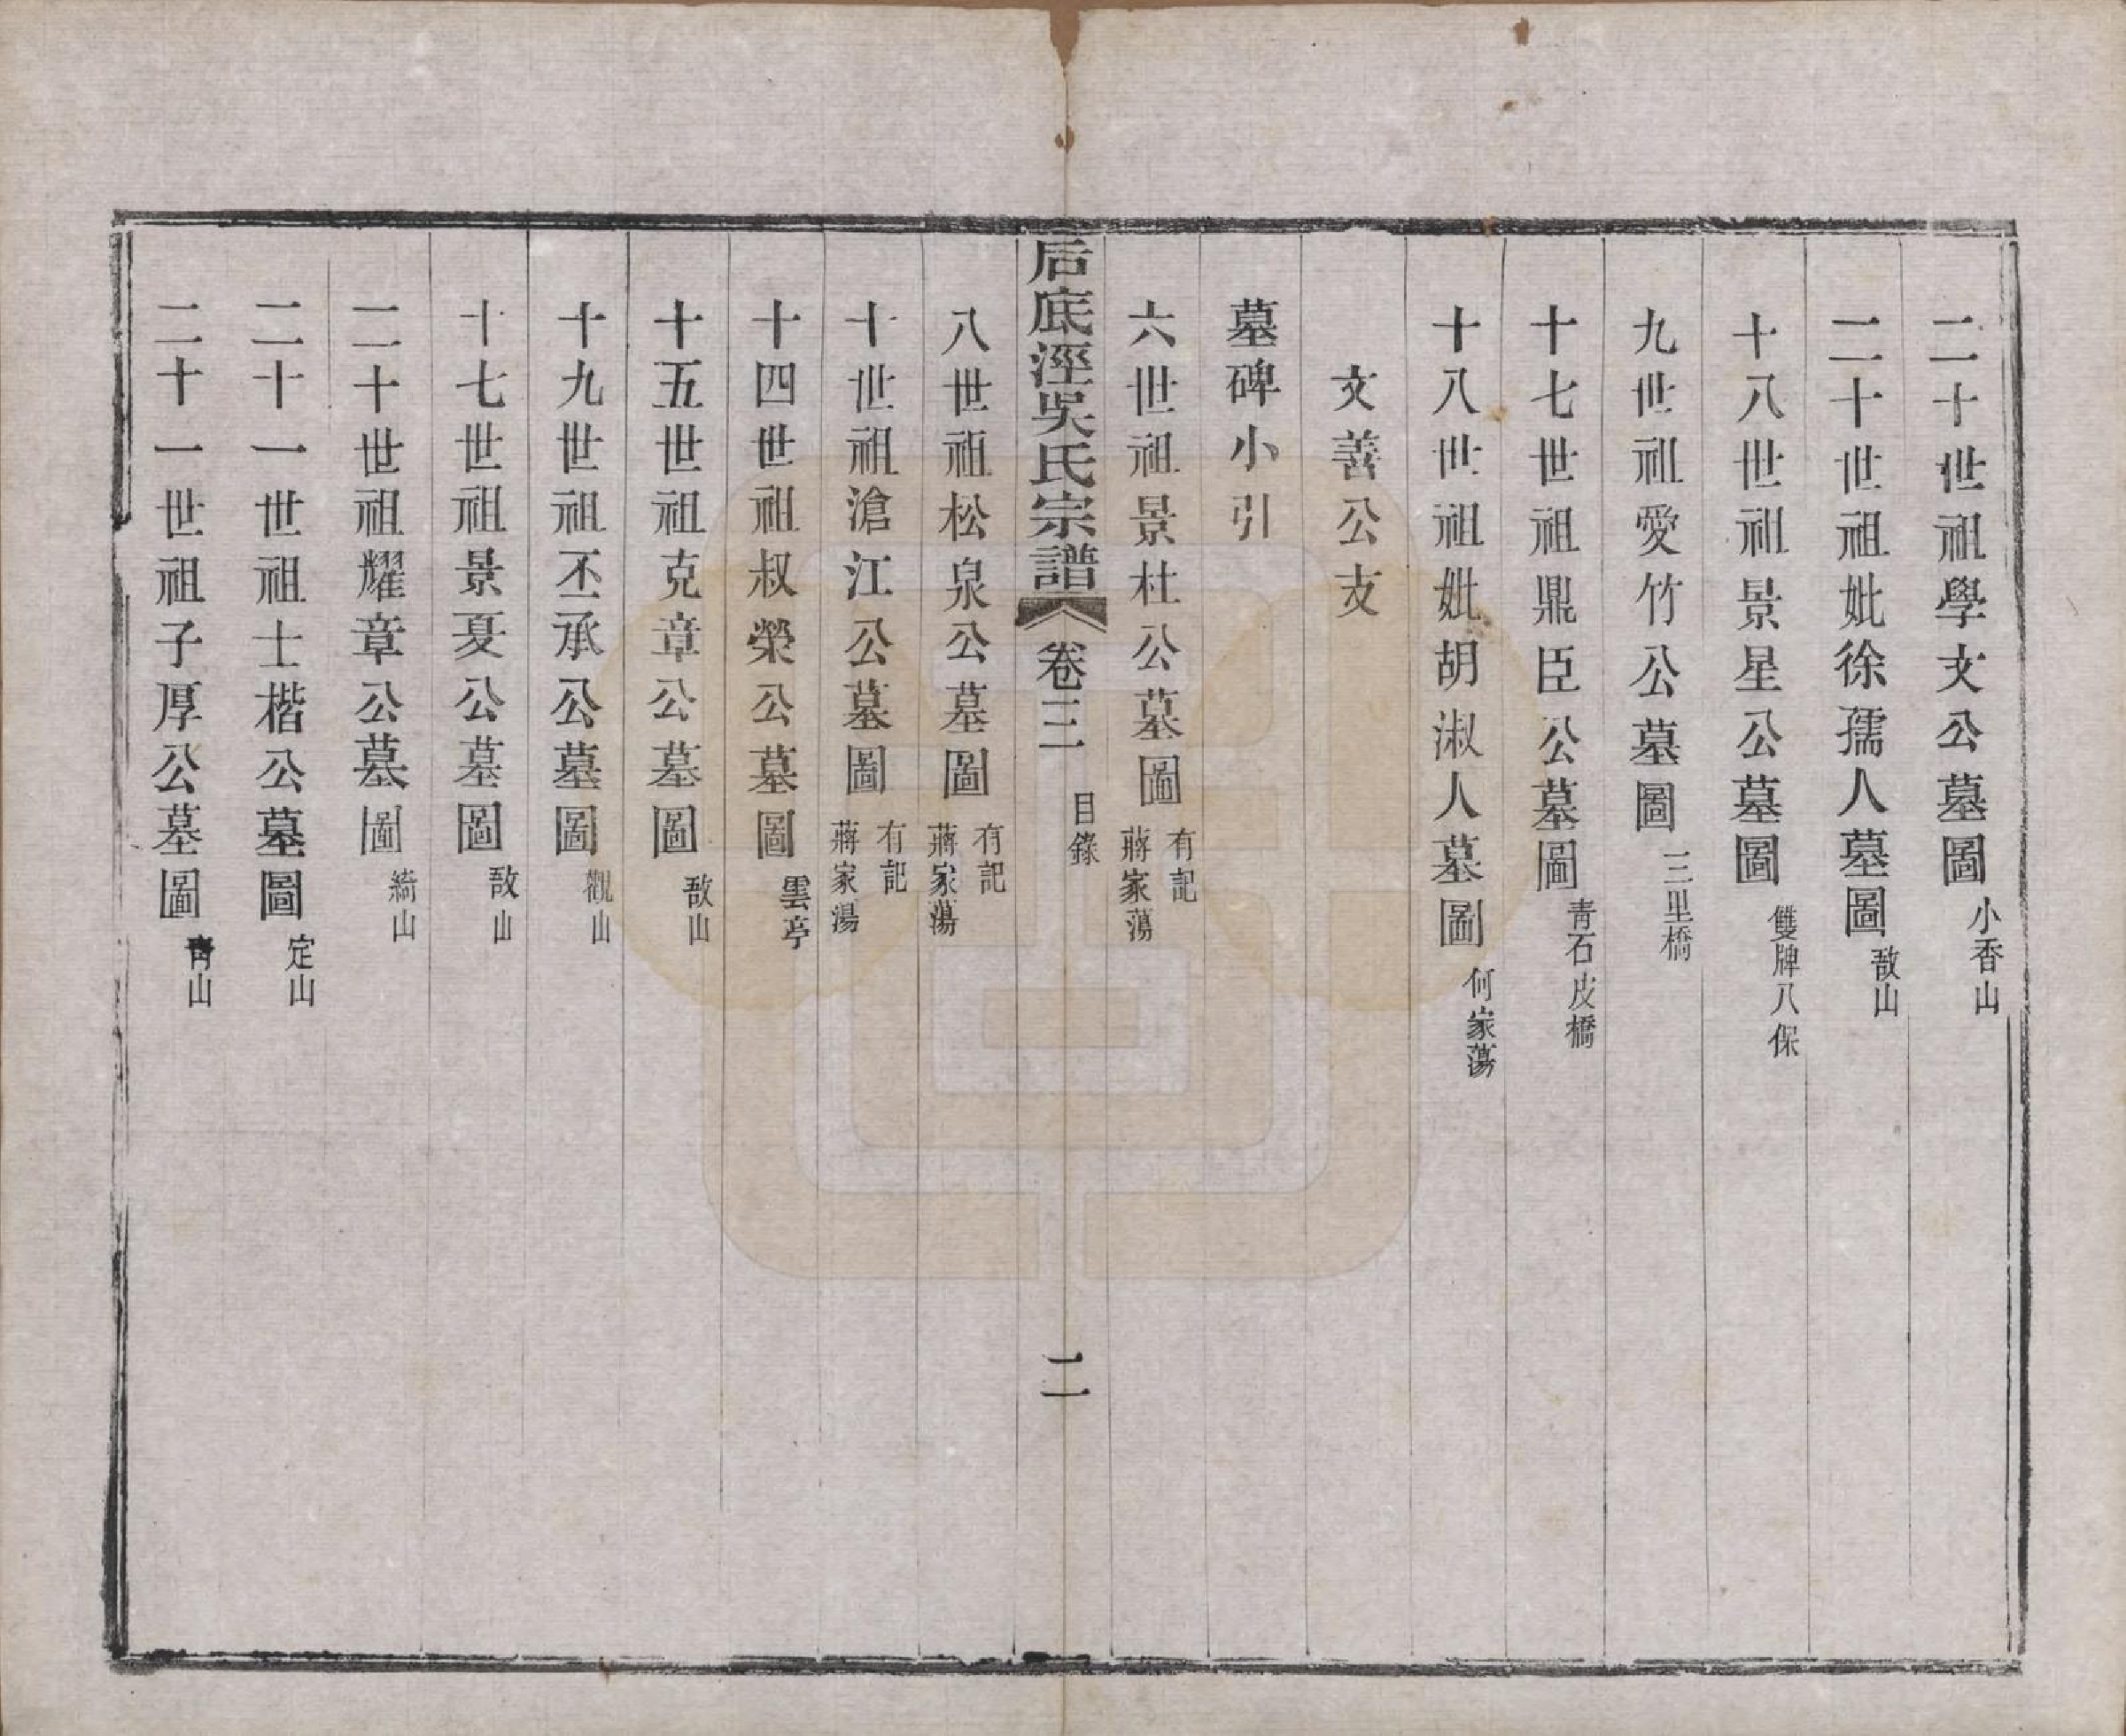 二十世祖學文公墓圖 小香山
二十世祖妣徐孺人墓圖 敔山
十八世祖景星公墓圖 雙牌八保
九世祖愛竹公墓圖 三里橋
十七世祖鼎臣公墓圖 青石皮橋
十八世祖妣胡淑人墓圖 何家蕩
文善公支
墓碑小引
六世祖景杜公墓圖 有記 蔣家蕩
后底涇吳氏宗譜 卷三 目錄 二
八世祖松泉公墓圖 有記 蔣家蕩
十世祖滄江公墓圖 有記 蔣家湯
十四世祖叔榮公墓圖 雲亭
十五世祖克章公墓圖 敔山
十九世祖丕承公墓圖 觀山
十七世祖景夏公墓圖 敔山
二十世祖耀章公墓圖 綺山
二十一世祖士楷公墓圖 定山
二十一世祖子厚公墓圖 青山